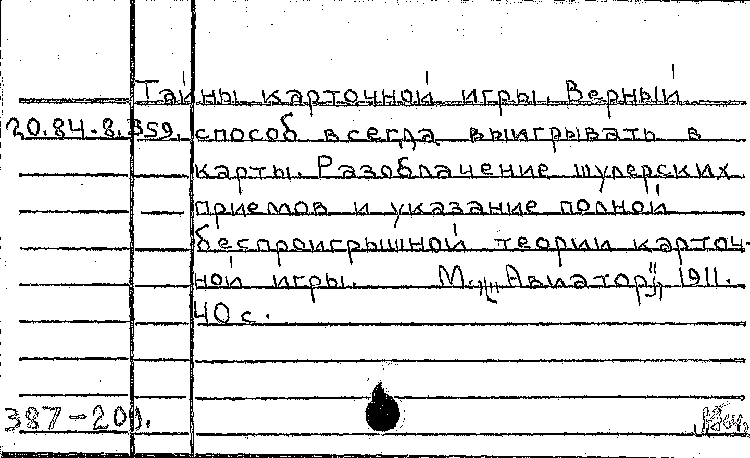 Тайны карточной игры. Верный
20.84.8.359. способ всегда выигрывать в
карты. Разоблачение шулерских
приемов и указание полной
беспроигрышной теории карточ-
ной игры. М., "Авиатор", 1911.
40 с.
387-200.